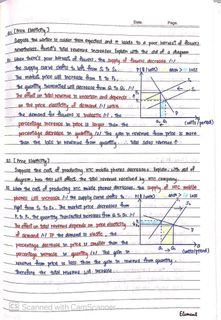 Date
Page
Q1. [Price Elasticity]
Suppose the winter is colder than expected and it leads to a poor harvest of flowers.
Nevertheless, florist's total revenue increases. Explain with the aid of a diagram.
When there's poor harvest of flowers, the supply of flowers decrease.
The supply curve shifts to left from S₁ to S₂.
The market price will increase from P₁ to P₂,
the quantity transacted will decrease from Q₁ to Q₂.
The effect on total revenue is uncertain and depends
on the price elasticity of demand. When
the demand for flowers is inelastic, the
percentage increase in price is larger than the
percentage decrease in quantity. The gain in revenue from price is more
than the loss in revenue from quantity. Total sales revenue ↑
P($/unit)
Q
(units/period)
[Price Elasticity]
Suppose the cost of producing HTC mobile phones decreases. Explain, with aid of
diagram, how this will affect the total revenue received by HTC company.
When the cost of producing HTC mobile phones decreases, the supply of HTC mobile
phones will increase. The supply curve shifts to
right from S₁ to S₂. The market price decreases from
P₁ to P₂, the quantity transacted increases from Q₁ to Q₂.
The effect on total revenue depends on price elasticity
of demand. If the demand is elastic, the
percentage decrease in price is smaller than the
percentage increase in quantity. The loss in
revenue from price is less than the gain in revenue from quantity.
Therefore the total revenue will increase.
P($/unit)
(units/period)
CS Scanned with CamScanner
Element